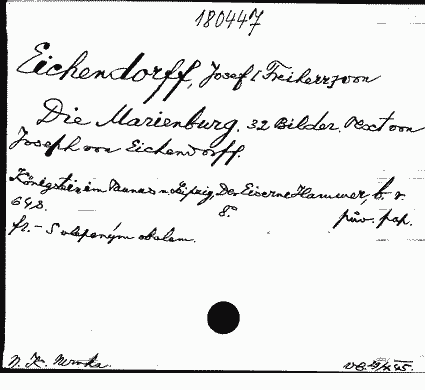 180447
Eichendorff, Josef (Freiherr) von
Die Marienburg. 32 Bilder. Text von
Joseph von Eichendorff.
Königstein im Taunus u. Leipzig, Der Eiserne Hammer, b. r.
64 S. 8° pův. pap.
fr. - S vlepeným obalem.
N. K.